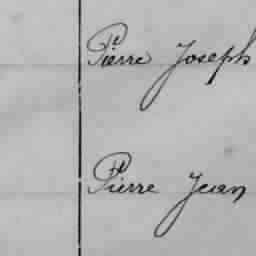 Pierre Joseph
Pierre Jean